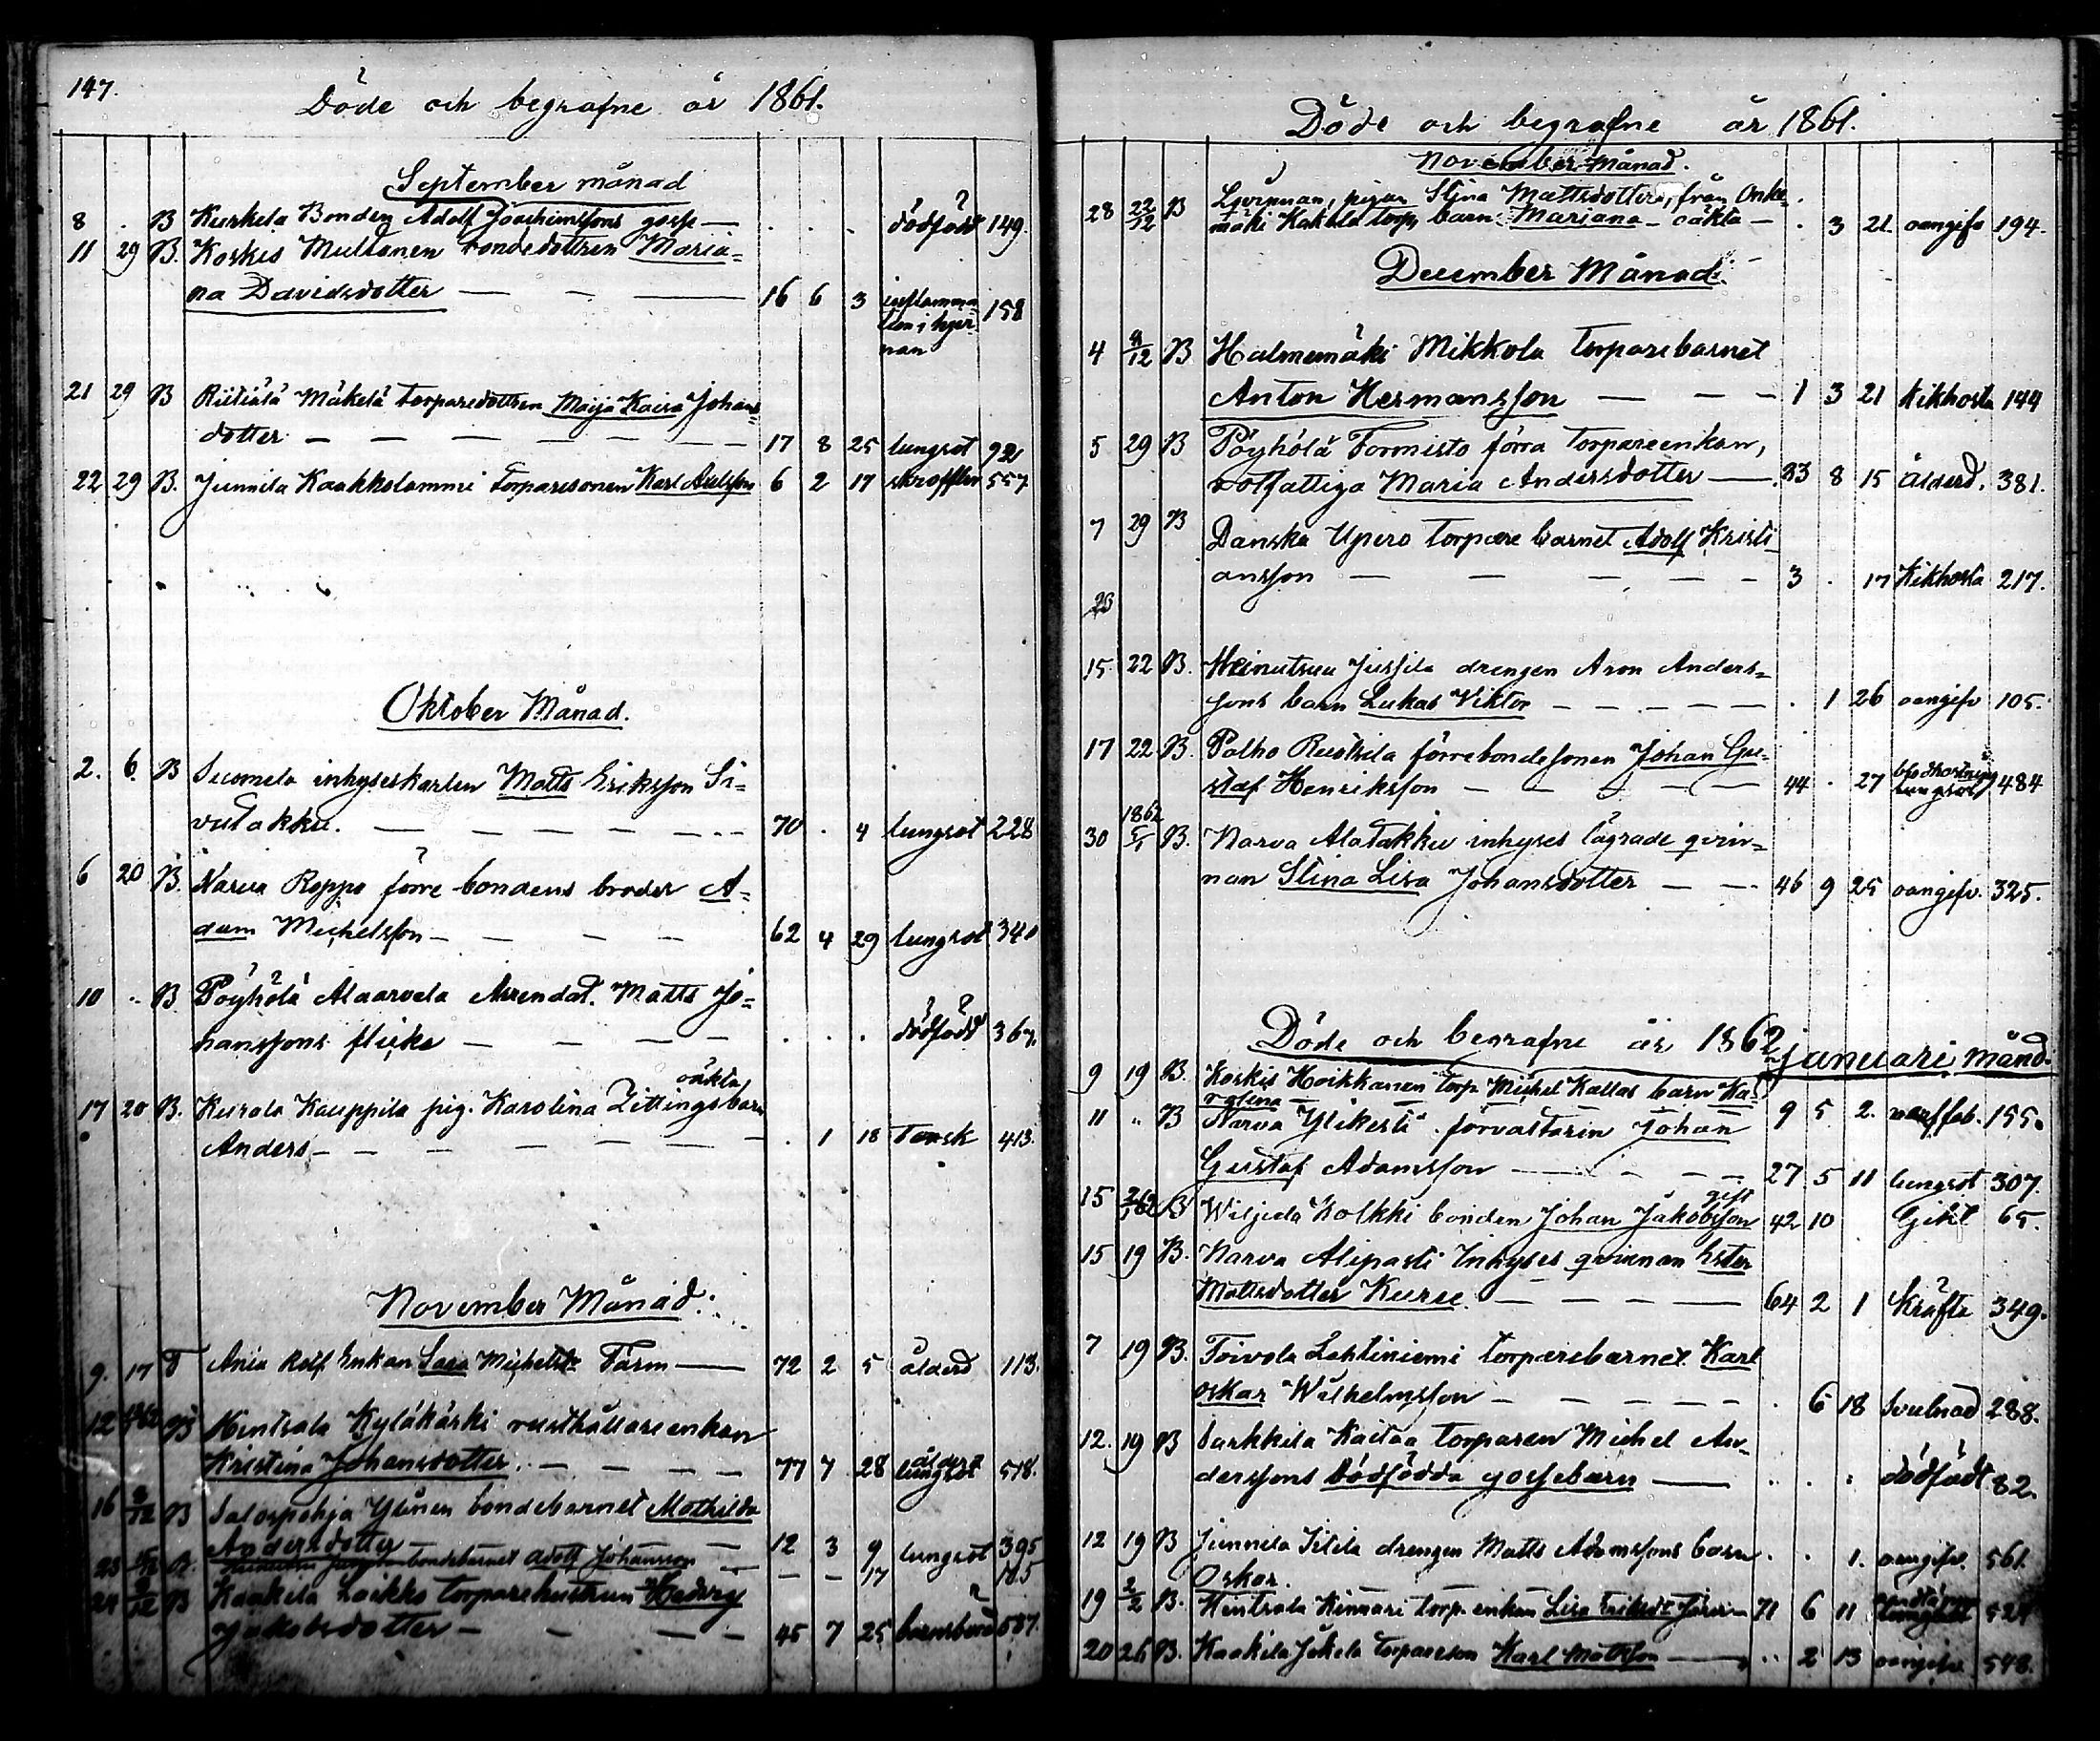 147.
Döde och begrafne år 1861.
September månad
8 . B Kurkela Bonden Adolf Joachimssons gosse — . . . dödfödd 149.
11 29 B. Koskis Multanen bondedottren Maria=
na Davidsdotter — — — 16 6 3 inflamma
tion i hjer
nan 158
21 29 B Riitiälä Mäkelä torparedottren Maija Kaisa Johans=
dotter — — — — — — — 17 8 25 lungsot 92
22 29 B. Junnila Kaakkolammi Torparesonen Karl Axelsson 6 2 17 skroffler 557
Oktober Månad.
2. 6. B Suomela inhyseskarlen Matts Eriksson Si=
vutakku. — — — — — — 70 . 4 lungsot 228
6 20 B. Narva Roppo förre bondens broder A=
dam Michelsson — — — — 62 4 29 lungsot 340
10 .. B. Pöyhölä Alaarvela Arrendat. Matts Jo=
hanssons flicka — — — — . . . dödfödd 367.
oäkta
17 20 B. Kurala Kauppila pig. Karolina Zittings barn
Anders — — — — — — . 1 18 Torsk 413.
November Månad.
9. 17 T Ania Rolf Enkan Sara Michelsdr. Färm — 72 2 5 ålderd 113.
12 B Hintsala Kyläkärki rusthållareenkan
Kristina Johansdotter. — — — — 77 7 28 ålderd lungsot 518.
16 8/12 B Salospohja Ylänen bondebarnet Mathilda
Andersdotter — — — 12 3 9 lungsot 395
23 15/12 B. bondebarnet Adolf Johansson — — — 17 185
24 8/12 B Kaakila Laikko torparehustrun Hedvig
Jakobsdotter — — — — 45 7 25 barnsbörd 507.
Döde och begrafne år 1861.
November Månad.
28 22/12 B pigan Stina Mattsdotters, från Onke=
mäki Kakkola torp, barn Mariana — oäkta — . 3 21. oangifv 194.
December Månad.
4 8/12 B Halmemäki Mikkola Torparebarnet
Anton Hermansson — — — 1 3 21 Kikhosta 144
5 29 B Pöyhölä Formisto förra Torpareenkan,
rotfattiga Maria Andersdotter — 83 8 15 Ålderd. 381.
7 29 B Danska Upero torpare barnet Adolf Kristi
ansson — — — — — 3 . 17 Kikhosta 217.
23
15 22 B. Heinutsuu Jussila drengen Aron Anders=
sons barn Lukas Viktor — — — — — . 1 26 oangifv 105.
17 22 B. Palho Ruotsila förrebondesonen Johan Gu=
staf Henriksson — — — — — 44 . 27 blodhostning
lungsot 484
1862
30 5/1 B. Narva Alatakku inhyses lägrade qvin=
nan Stina Lisa Johansdotter — — 46 9 25 oangifv. 325.
Döde och begrafne år 1862 januari månd.
9 19 B. Koskis Hoikkanen torp. Michel Kallas barn Ka=
rolina — — — — — 9 5 2. nerffeb. 155.
11 .. B Narva Ylikesti förvaltarin Johan
Gustaf Adamsson — — — — 27 5 11 lungsot 307.
gift
15 2/2 62 B Wiljiela Kolkki bonden Johan Jakobsson 42 10 Gikt 65.
15 19 B. Narva Alipasti Inhyses qvinnan Ester
Mattsdotter Kuru. — — — — 64 2 1 Kräfta 349.
7 19 B. Toivola Lehtiniemi torparebarnet Karl
Oskar Wilhelmsson — — — — — . 6 18 Svulnad 288.
12. 19 B Sarkkila Kaitaa torparen Michel An=
derssons dödfödda gossebarn — . . . dödfödt 82.
12 19 B Junnila Iilila drengen Matts Adamssons barn . . 1. oangifv. 561.
Oskar.
19 2/2 B. Hintsala Kinnari torp. enkan Lisa Eriksdr — 71 6 11 524
20 26 B. Kaakila Jokela torpareson Karl Mattsson — .. 2 13 oangifv. 548.